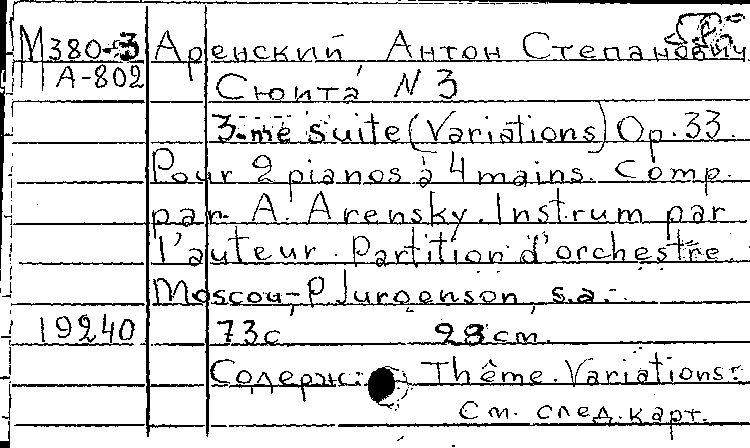 М380-3 Аренский Антон Степанович
А-802 Сюита N 3
3-me suite (Variations) Op. 33.
Pour 2 pianos à 4 mains. Comp.
par A. Arensky. Instrum par
l'auteur. Partition d'orchestre
Moscou, P. Jurgenson, s.a.-
19240 73с 28 cm.
Содерж.: Thême. Variations:
См. след. карт.